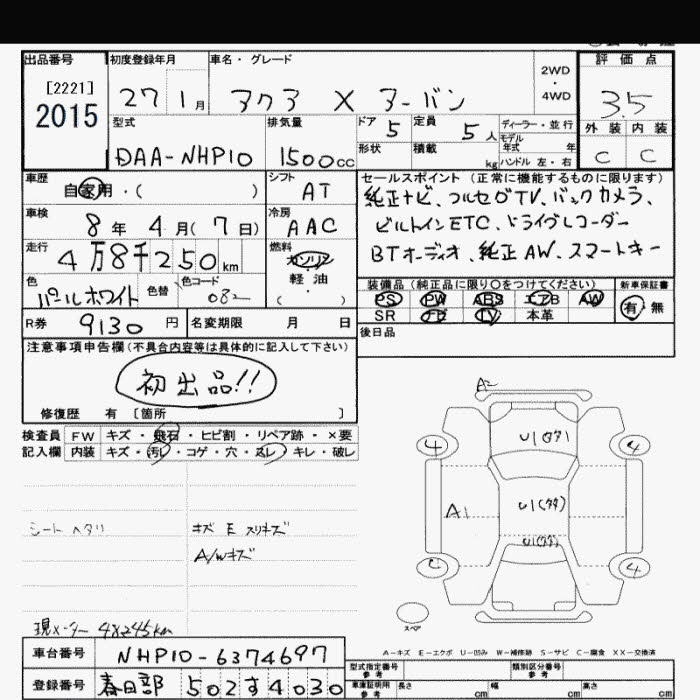 出品番号 初度登録年月 車名・グレード 評価点
[2221]
2015
27 1月 アクア X アーバン 2WD・4WD 3.5
型式 排気量 ドア 5 定員 5人 ディーラー・並行 外装 内装
モデル年式 年式
DAA-NHP10 1500cc 形状 積載 kg ハンドル 左・右 C C
車歴 自家用・( ) シフト AT セールスポイント (正常に機能するものに限ります)
純正ナビ、フルセグTV、バックカメラ、
車検 8年 4月(7日) 冷房 AAC ビルトインETC、ドライブレコーダー
走行 4万8千250km 燃料 ガソリン 軽・油 ( ) BTオーディオ、純正AW、スマートキー
色 パールホワイト 色替 色コード 082 装備品 (純正品に限り○をつけてください) 新車保証書
PS PW ABS エアB AW 有・無
R券 9130円 名変期限 月 日 SR ナビ TV 本革
後日品
注意事項申告欄(不具合内容等は具体的に記入して下さい)
初出品!!
修復歴 有 [箇所 ]
検査員 FW キズ・飛石・ヒビ割・リペア跡・×要
記入欄 内装 キズ・汚レ・コゲ・穴・スレ・キレ・破レ
A2
U1(タタ)
4 4
A1 U1(タタ)
U1(タタ)
シートヘタリ キズ E スリキズ
A/Wキズ
4
スペア
現メーター 48245km
A-キズ E-エクボ U-凹み W-補修跡 S-サビ C-腐食 XX-交換済
車台番号 NHP10-6374697 型式指定番号 参考 類別区分番号 参考
登録番号 春日部 502 す 4030 車庫証明用 参考 長さ cm 幅 cm 高さ cm